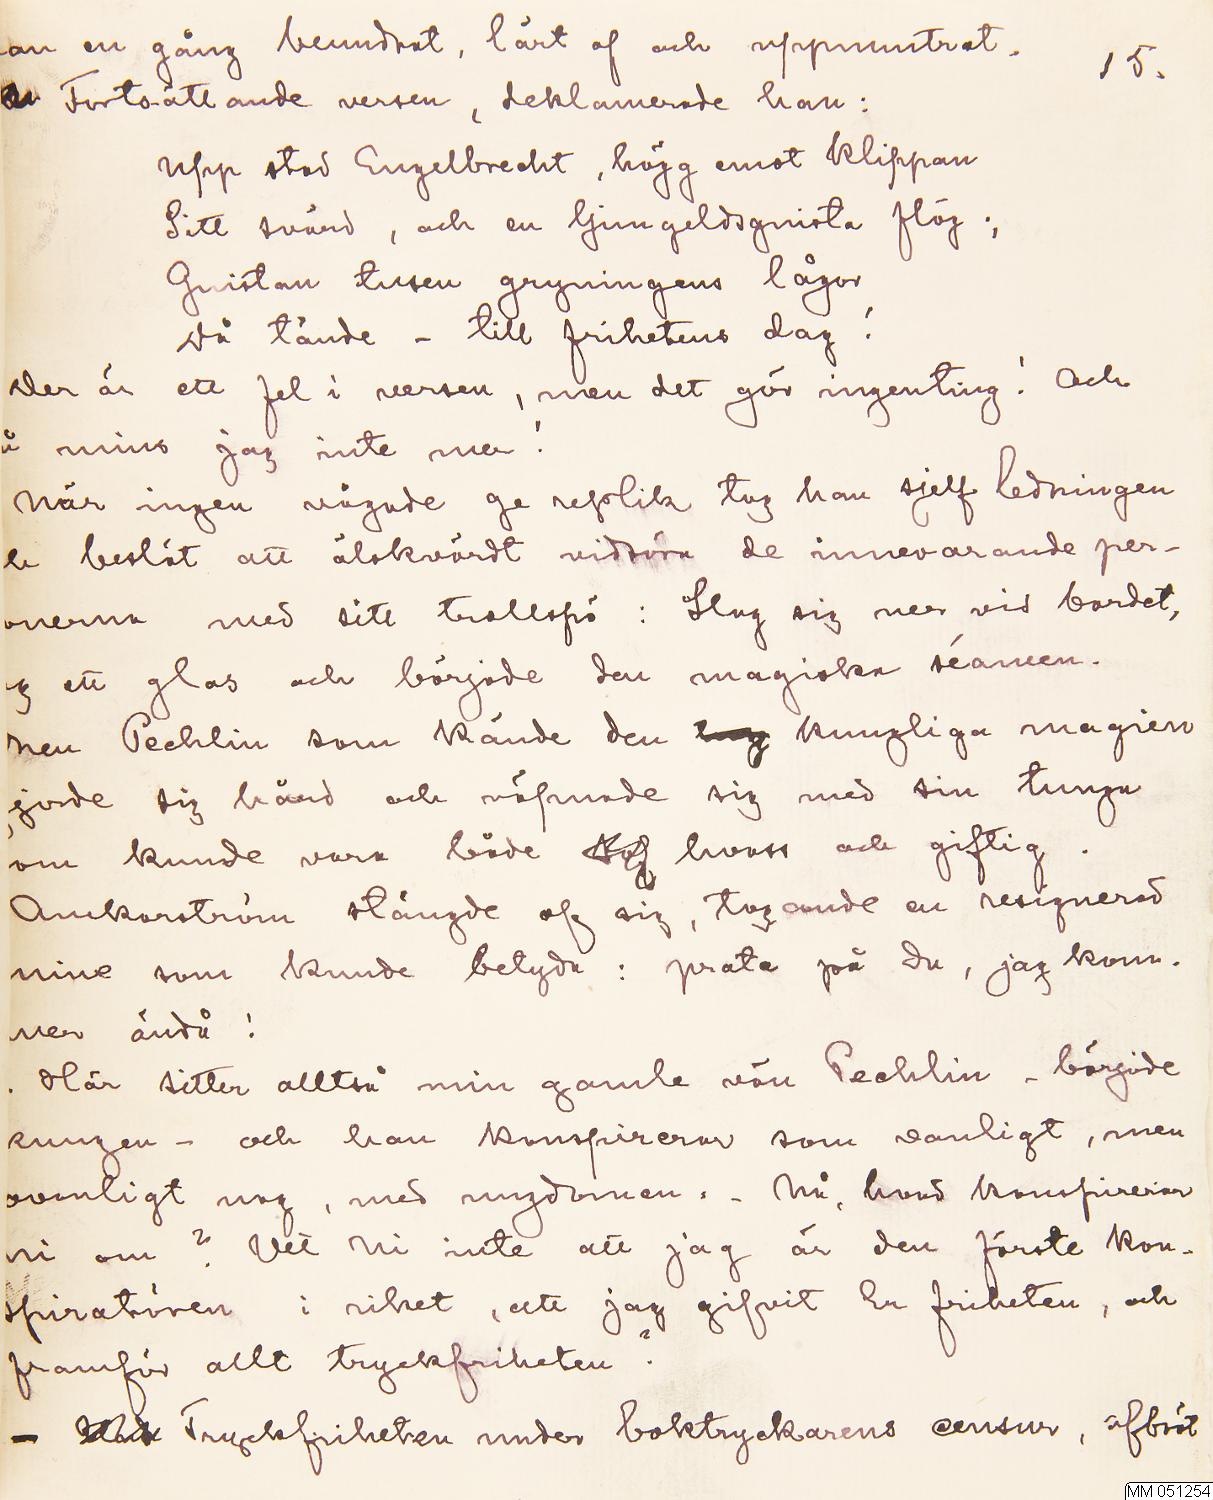 an en gång beundrat, lärt af och uppmuntrat.
15.
Fortsättande versen, deklamerade han:
Upp stod Engelbrecht, högg emot klippan
Sitt svärd, och en ljungeldsgnista flög;
Gnistan tusen gryningens lågor
Då tände – till frihetens dag!
Der är ett fel i versen, men det gör ingenting! Och
å mins jag inte mer!
När ingen vågade ge replik tog han sjelf ledningen
h beslöt att älskvärdt vidröra de innevarande per-
onerna med sitt trollspö: Slog sig ner vid bordet,
g ett glas och började den magiska séancen.
Men Pechlin som kände den kungliga magien
gjorde sig hård och väpnade sig med sin tunga
om kunde vara både hvass och giftig.
Anckarström stängde af sig, tagande en resignerad
mine som kunde betyda: prata på du, jag kom-
mer ändå!
. Här sitter alltså min gamle vän Pechlin – började
kungen – och han konspirerar som vanligt, men
ovanligt nog, med ungdomen. – Nå, hvad konspirerar
ni om? Vet Ni inte att jag är den förste kon-
spiratören i riket, att jag gifvit Er friheten, och
framför allt tryckfriheten?
– Tryckfriheten under boktryckarens censur, afbröt
MM 051254